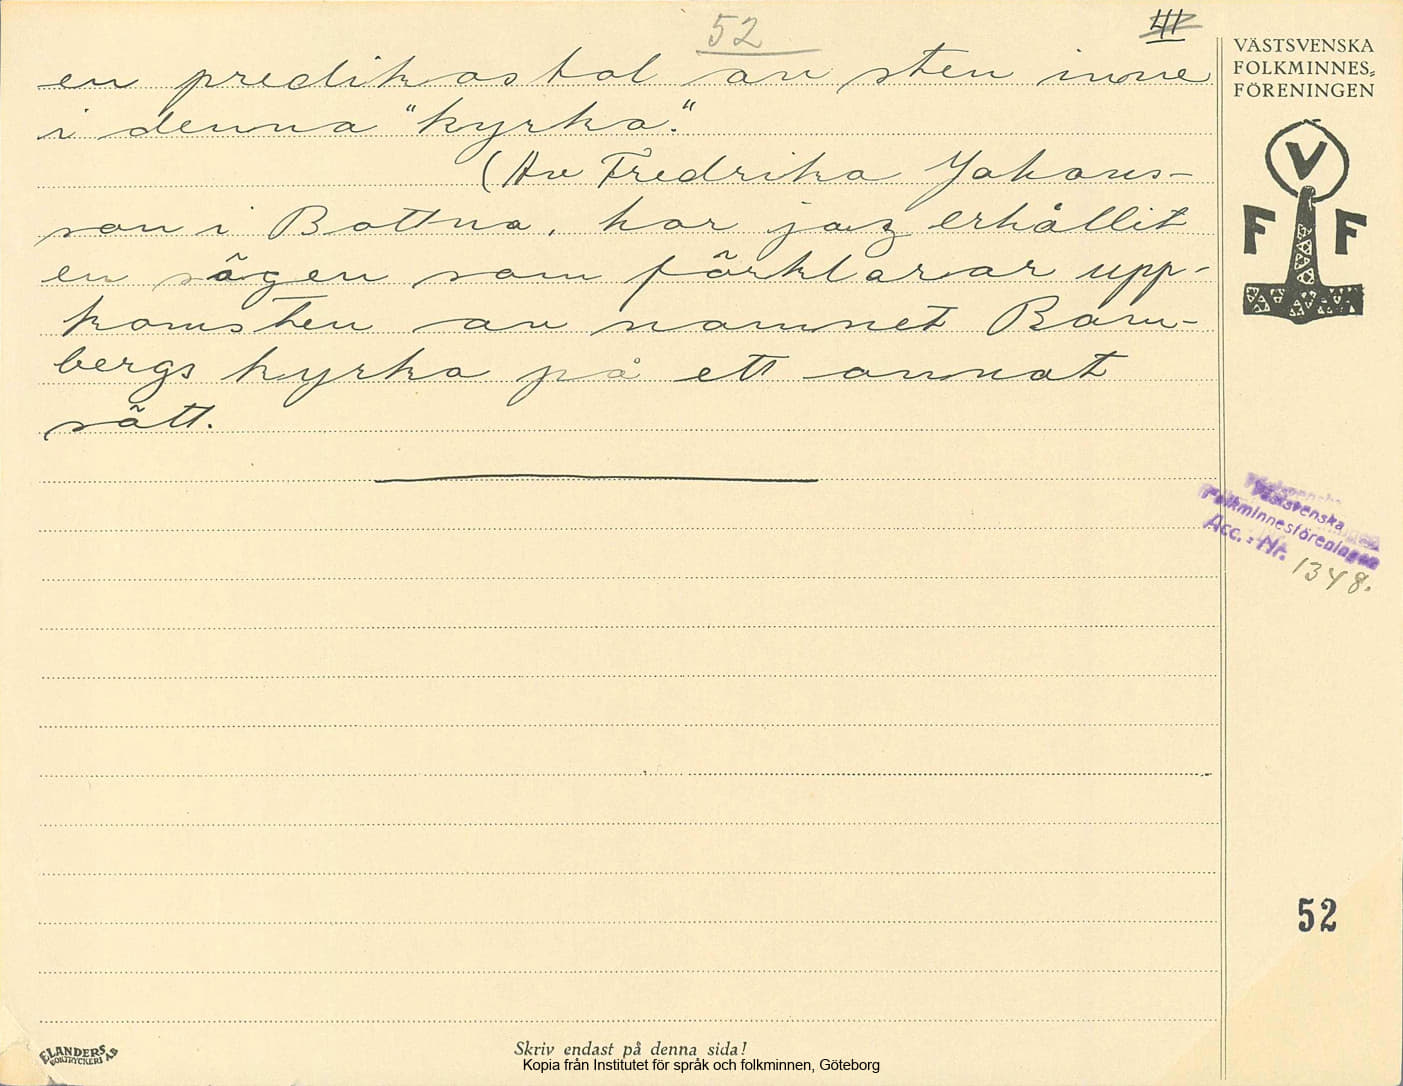 52
VÄSTSVENSKA
FOLKMINNES=
FÖRENINGEN
V
F F
en predikastol av sten inne
i denna "kyrka."
(Av Fredrika Johans-
son i Bottna, har jag erhållit
en sägen som förklarar upp-
komsten av namnet Bram-
bergs kyrka på ett annat
sätt.
Västsvenska
Folkminnesföreningen
Acc.-Nr. 1348.
52
ELANDERS
BOKTRYCKERI AB
Skriv endast på denna sida!
Kopia från Institutet för språk och folkminnen, Göteborg